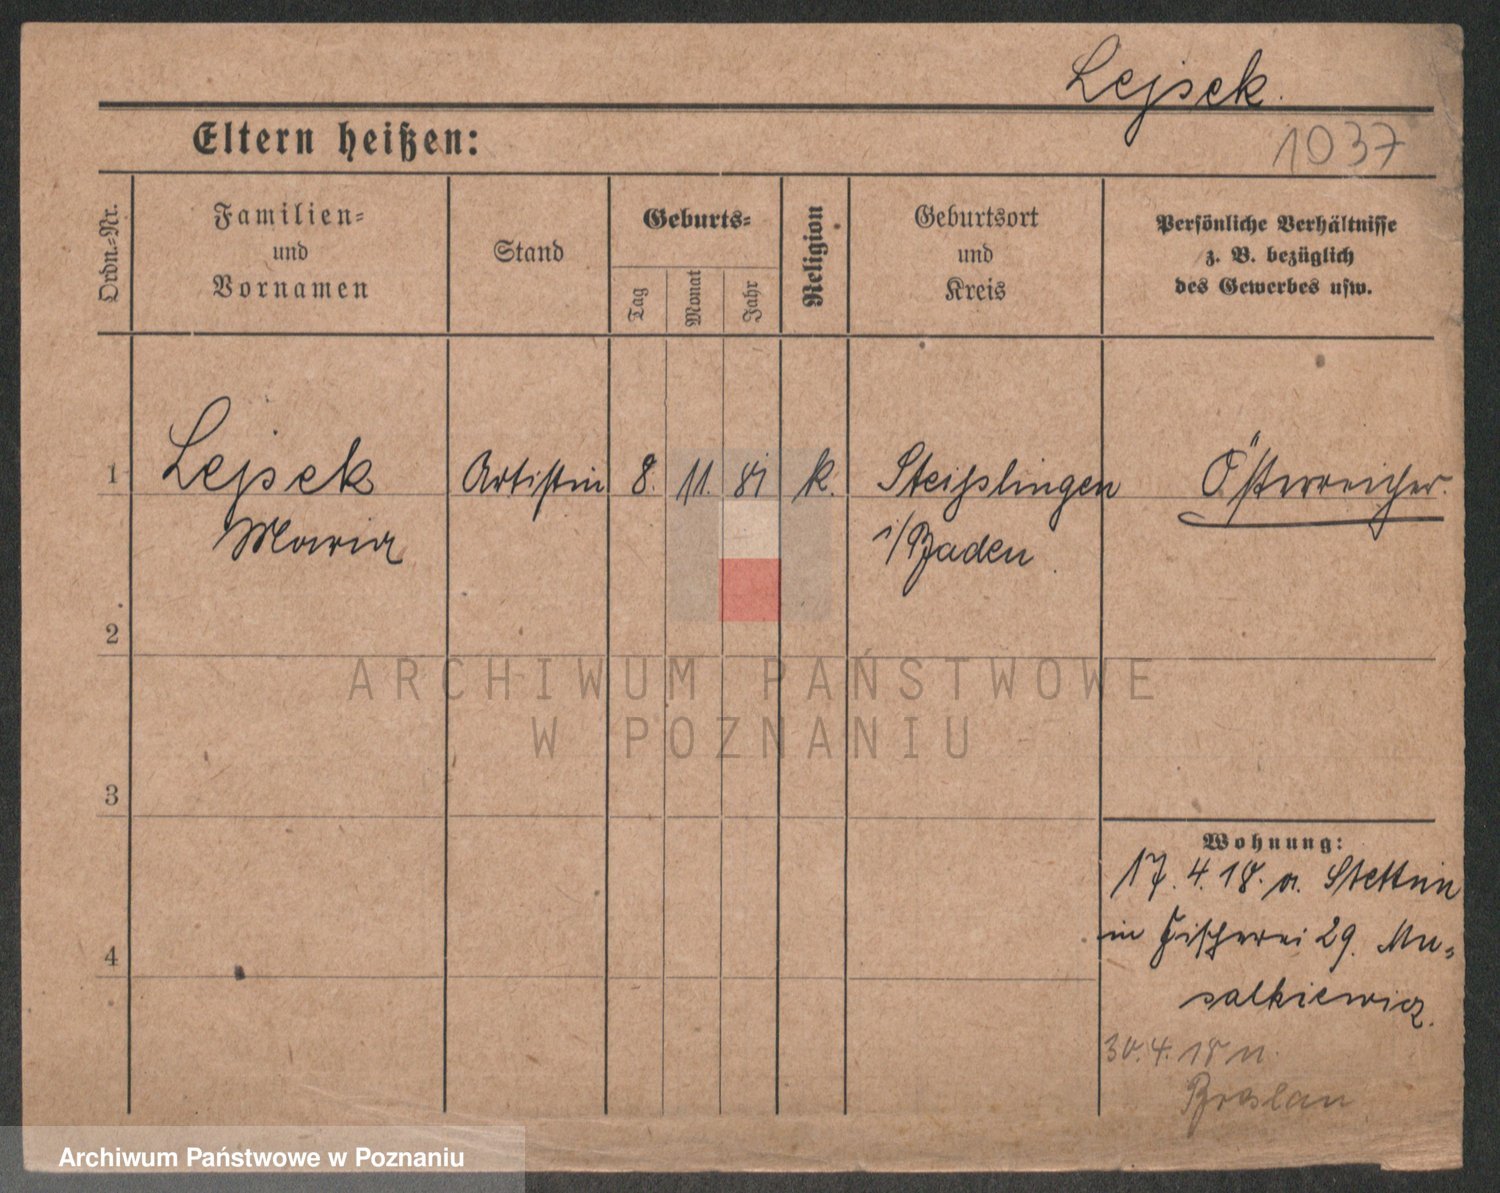 Lejsek.
1037
Eltern heißen:
Ordn.-Nr.
Familien-
und
Vornamen
Stand
Geburts-
Tag
Monat
Jahr
Religion
Geburtsort
und
Kreis
Persönliche Verhältnisse
z. B. bezüglich
des Gewerbes usw.
1 Lejsek Artistin 8. 11. 81 k. Steißlingen Österreicher.
Maria i/Baden
2
ARCHIWUM PAŃSTWOWE
W POZNANIU
3
Wohnung:
17.4.18. a. Stettin
in Fischerei 29. Mu-
salkiewicz.
4
30.4.18 n.
Breslau
Archiwum Państwowe w Poznaniu